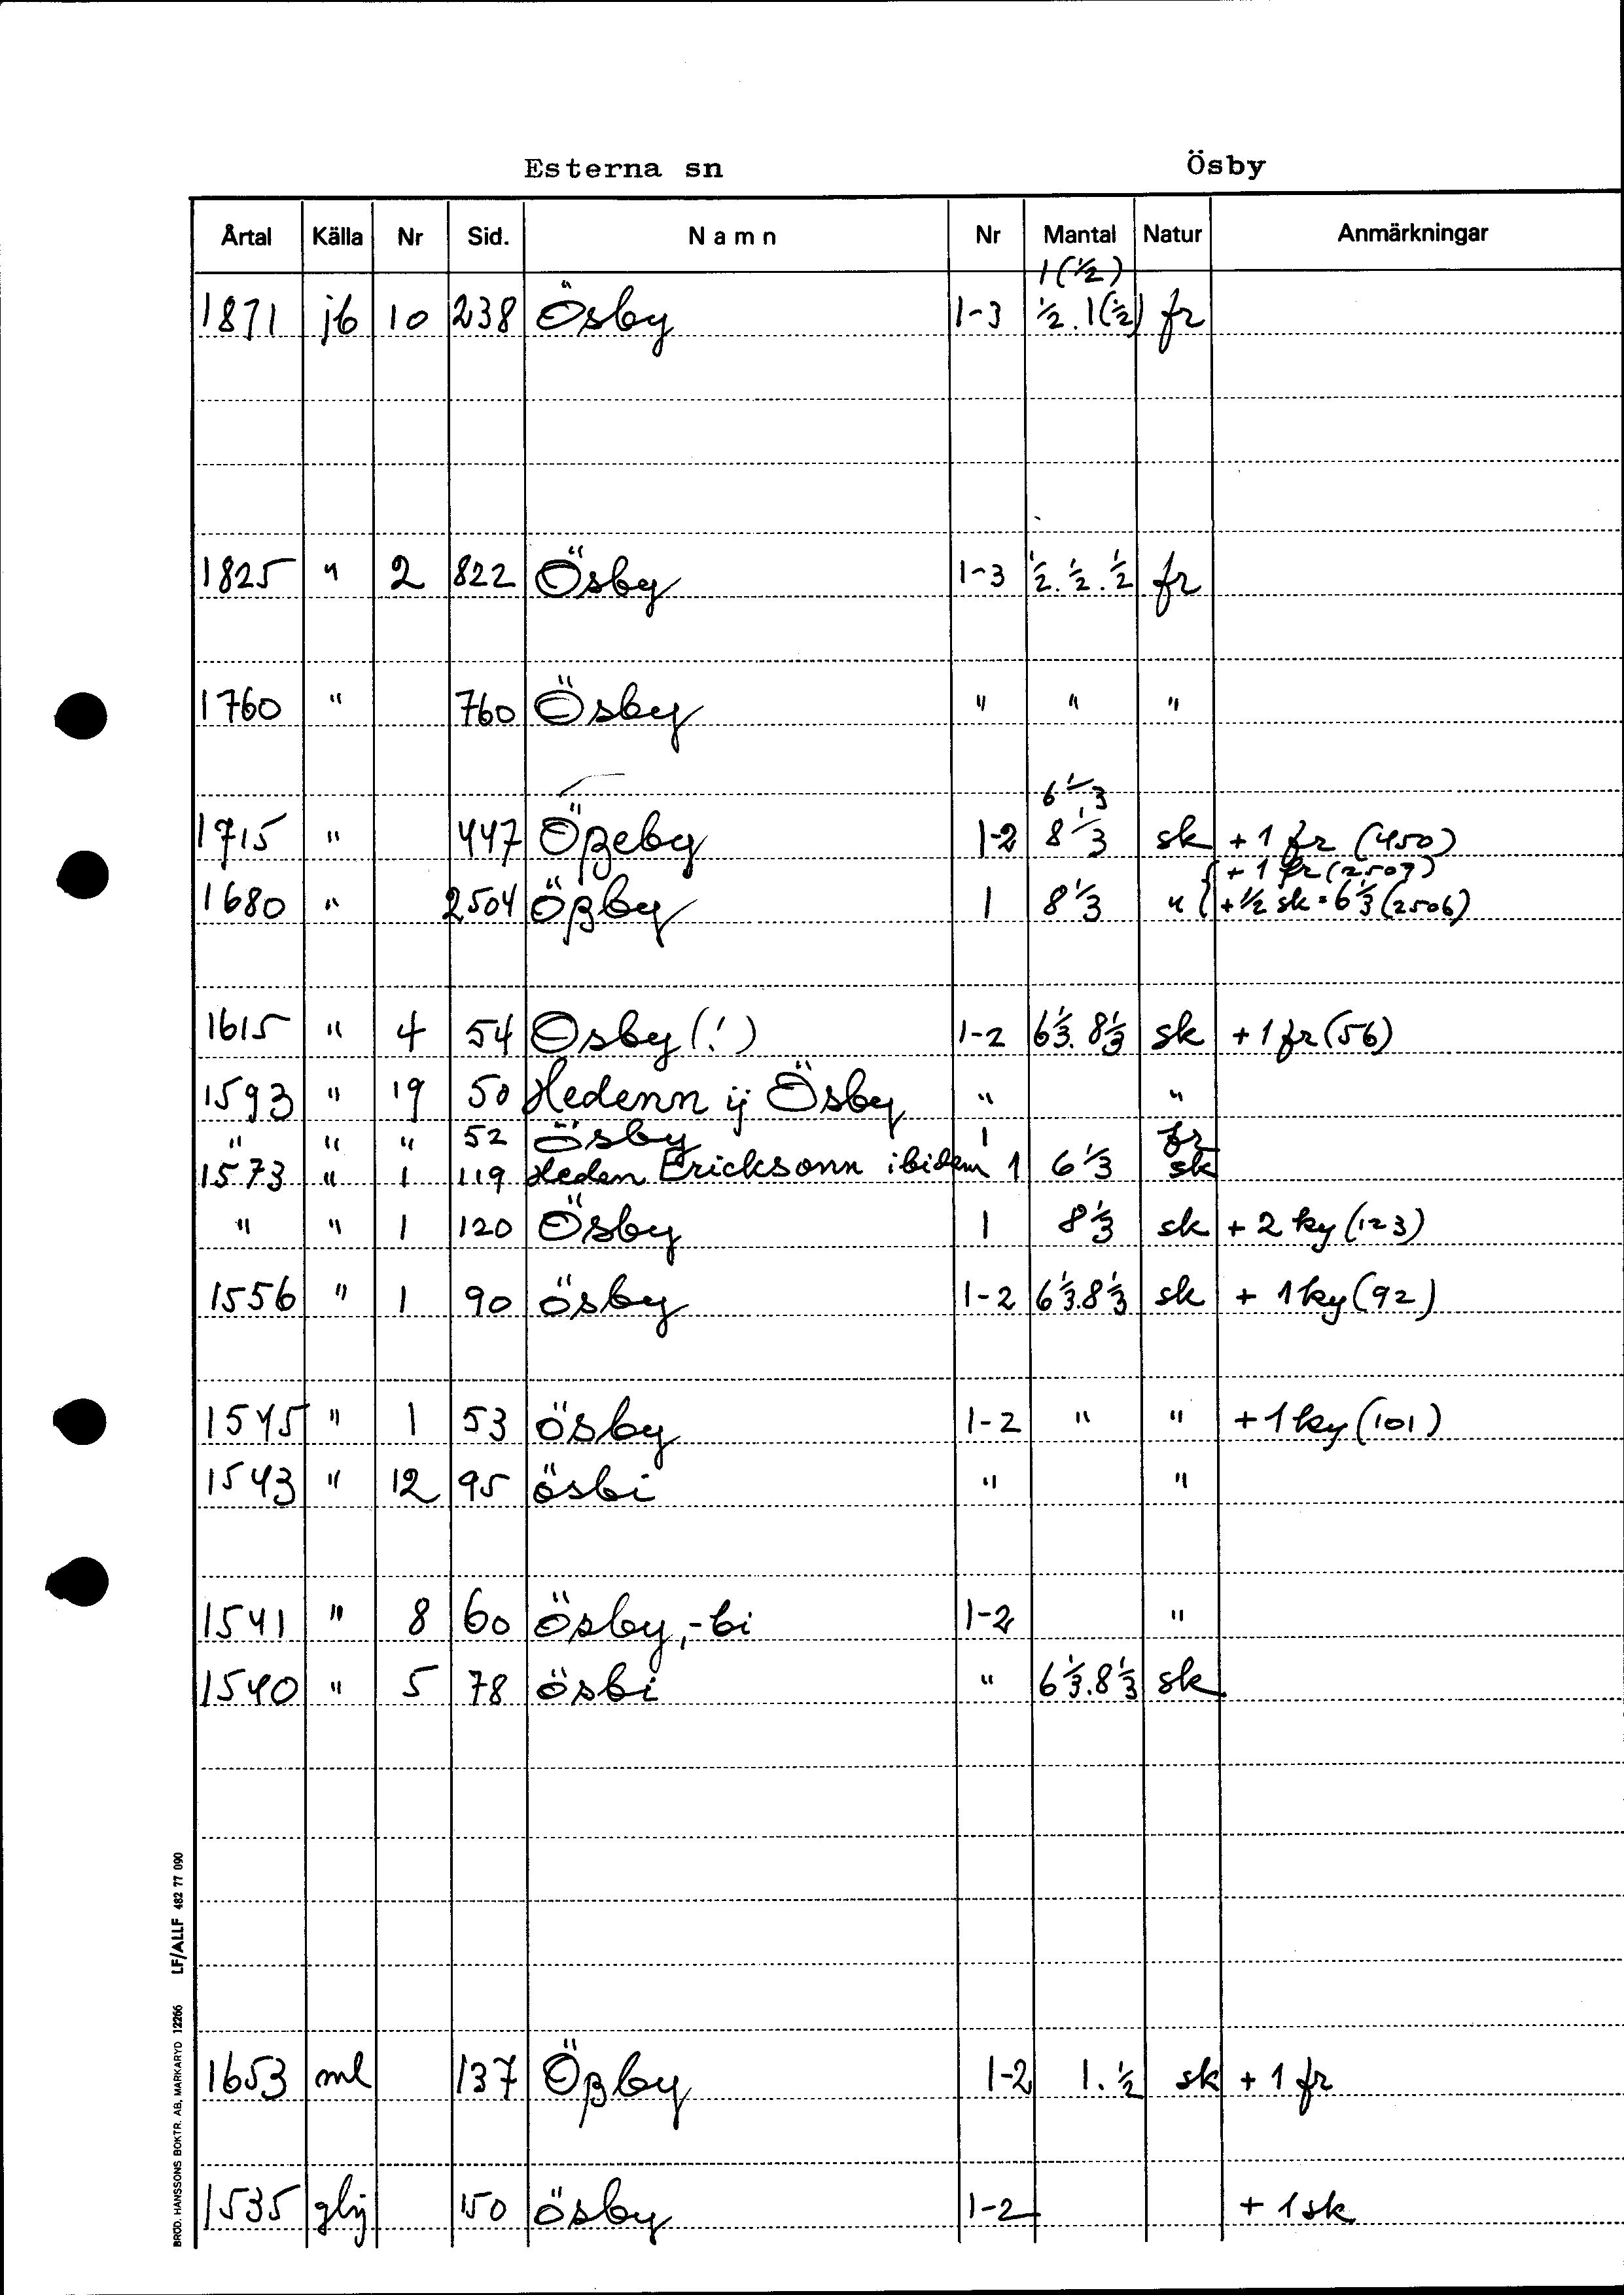 Esterna sn Ösby
Årtal Källa Nr Sid. Namn Nr Mantal Natur Anmärkningar
1(½)
1871 jb 10 238 Ösby 1-3 ½. 1(½) fr
1825 " 2 822 Ösby 1-3 ½. ½. ½ fr
1760 " 760 Ösby " " "
6 1/3
1715 " 447 Ößeby 1-2 8 1/3 sk + 1 fr (450)
+ 1 fr (2507)
1680 " 2504 Ößby 1 8 1/3 " + ½ sk = 6 1/3 (2506)
1615 " 4 54 Osby (!) 1-2 6 1/3. 8 1/3 sk + 1 fr (56)
1593 " 19 50 Hedenn ij Ösby " "
" " " 52 Ösby 1 fr
1573 " 1 119 Heden Ericksonn ibidem 1 6 1/3 sk
" " 1 120 Ösby 1 8 1/3 sk + 2 ky (123)
1556 " 1 90 ösby 1-2 6 1/3. 8 1/3 sk + 1 ky (92)
1545 " 1 53 ösby 1-2 " " + 1 ky (101)
1543 " 12 95 ösbi " "
1541 " 8 60 Ösby, -bi 1-2 "
1540 " 5 78 ösbi " 6 1/3. 8 1/3 sk
1653 ml 137 Ößby 1-2 1. ½ sk + 1 fr
1535 glij 150 ösby 1-2 + 1 sk
BRÖD. HANSSONS BOKTR. AB, MARKARYD 12266 LF/ALLF 482 77 090